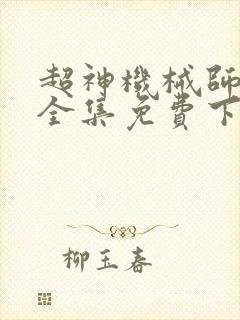 超神機械師
全集免費下
柳玉春